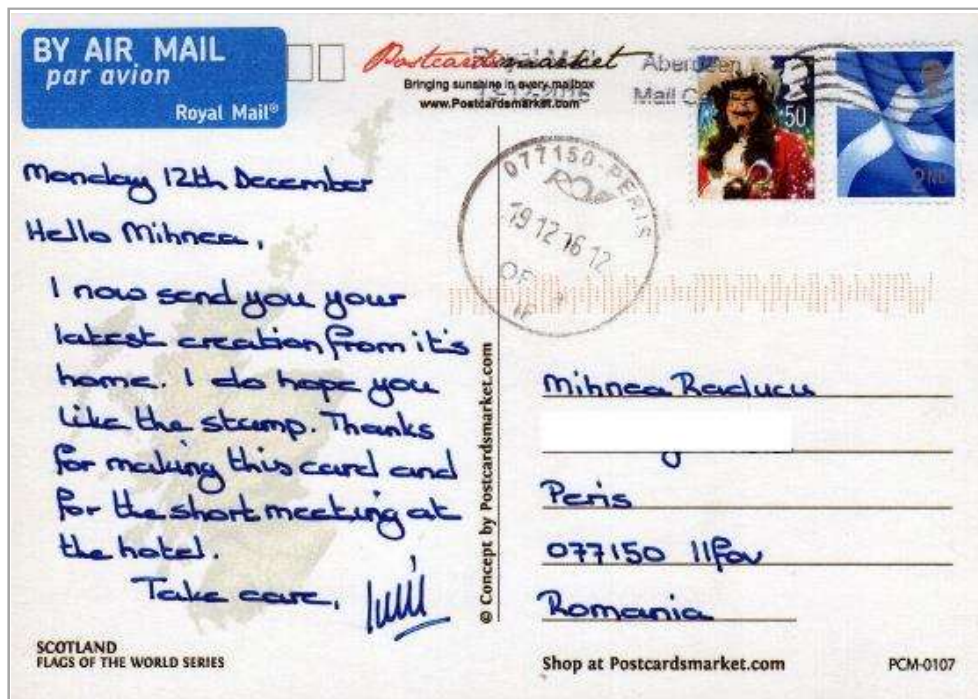 BY AIR MAIL
par avion
Royal Mail®
Postcardsmarket
Bringing sunshine in every mailbox
www.Postcardsmarket.com
Royal Mail
Aberdeen
Mail
50
2ND
077150-PERIS
19 12 16 12
OF
IF
Monday 12th December
Hello Mihnea,
I now send you your
latest creation from it's
home. I do hope you
like the stamp. Thanks
for making this card and
for the short meeting at
the hotel.
Take care,
© Concept by Postcardsmarket.com
Mihnea Raducu
Peris
077150 Ilfov
Romania
SCOTLAND
FLAGS OF THE WORLD SERIES
Shop at Postcardsmarket.com
PCM-0107